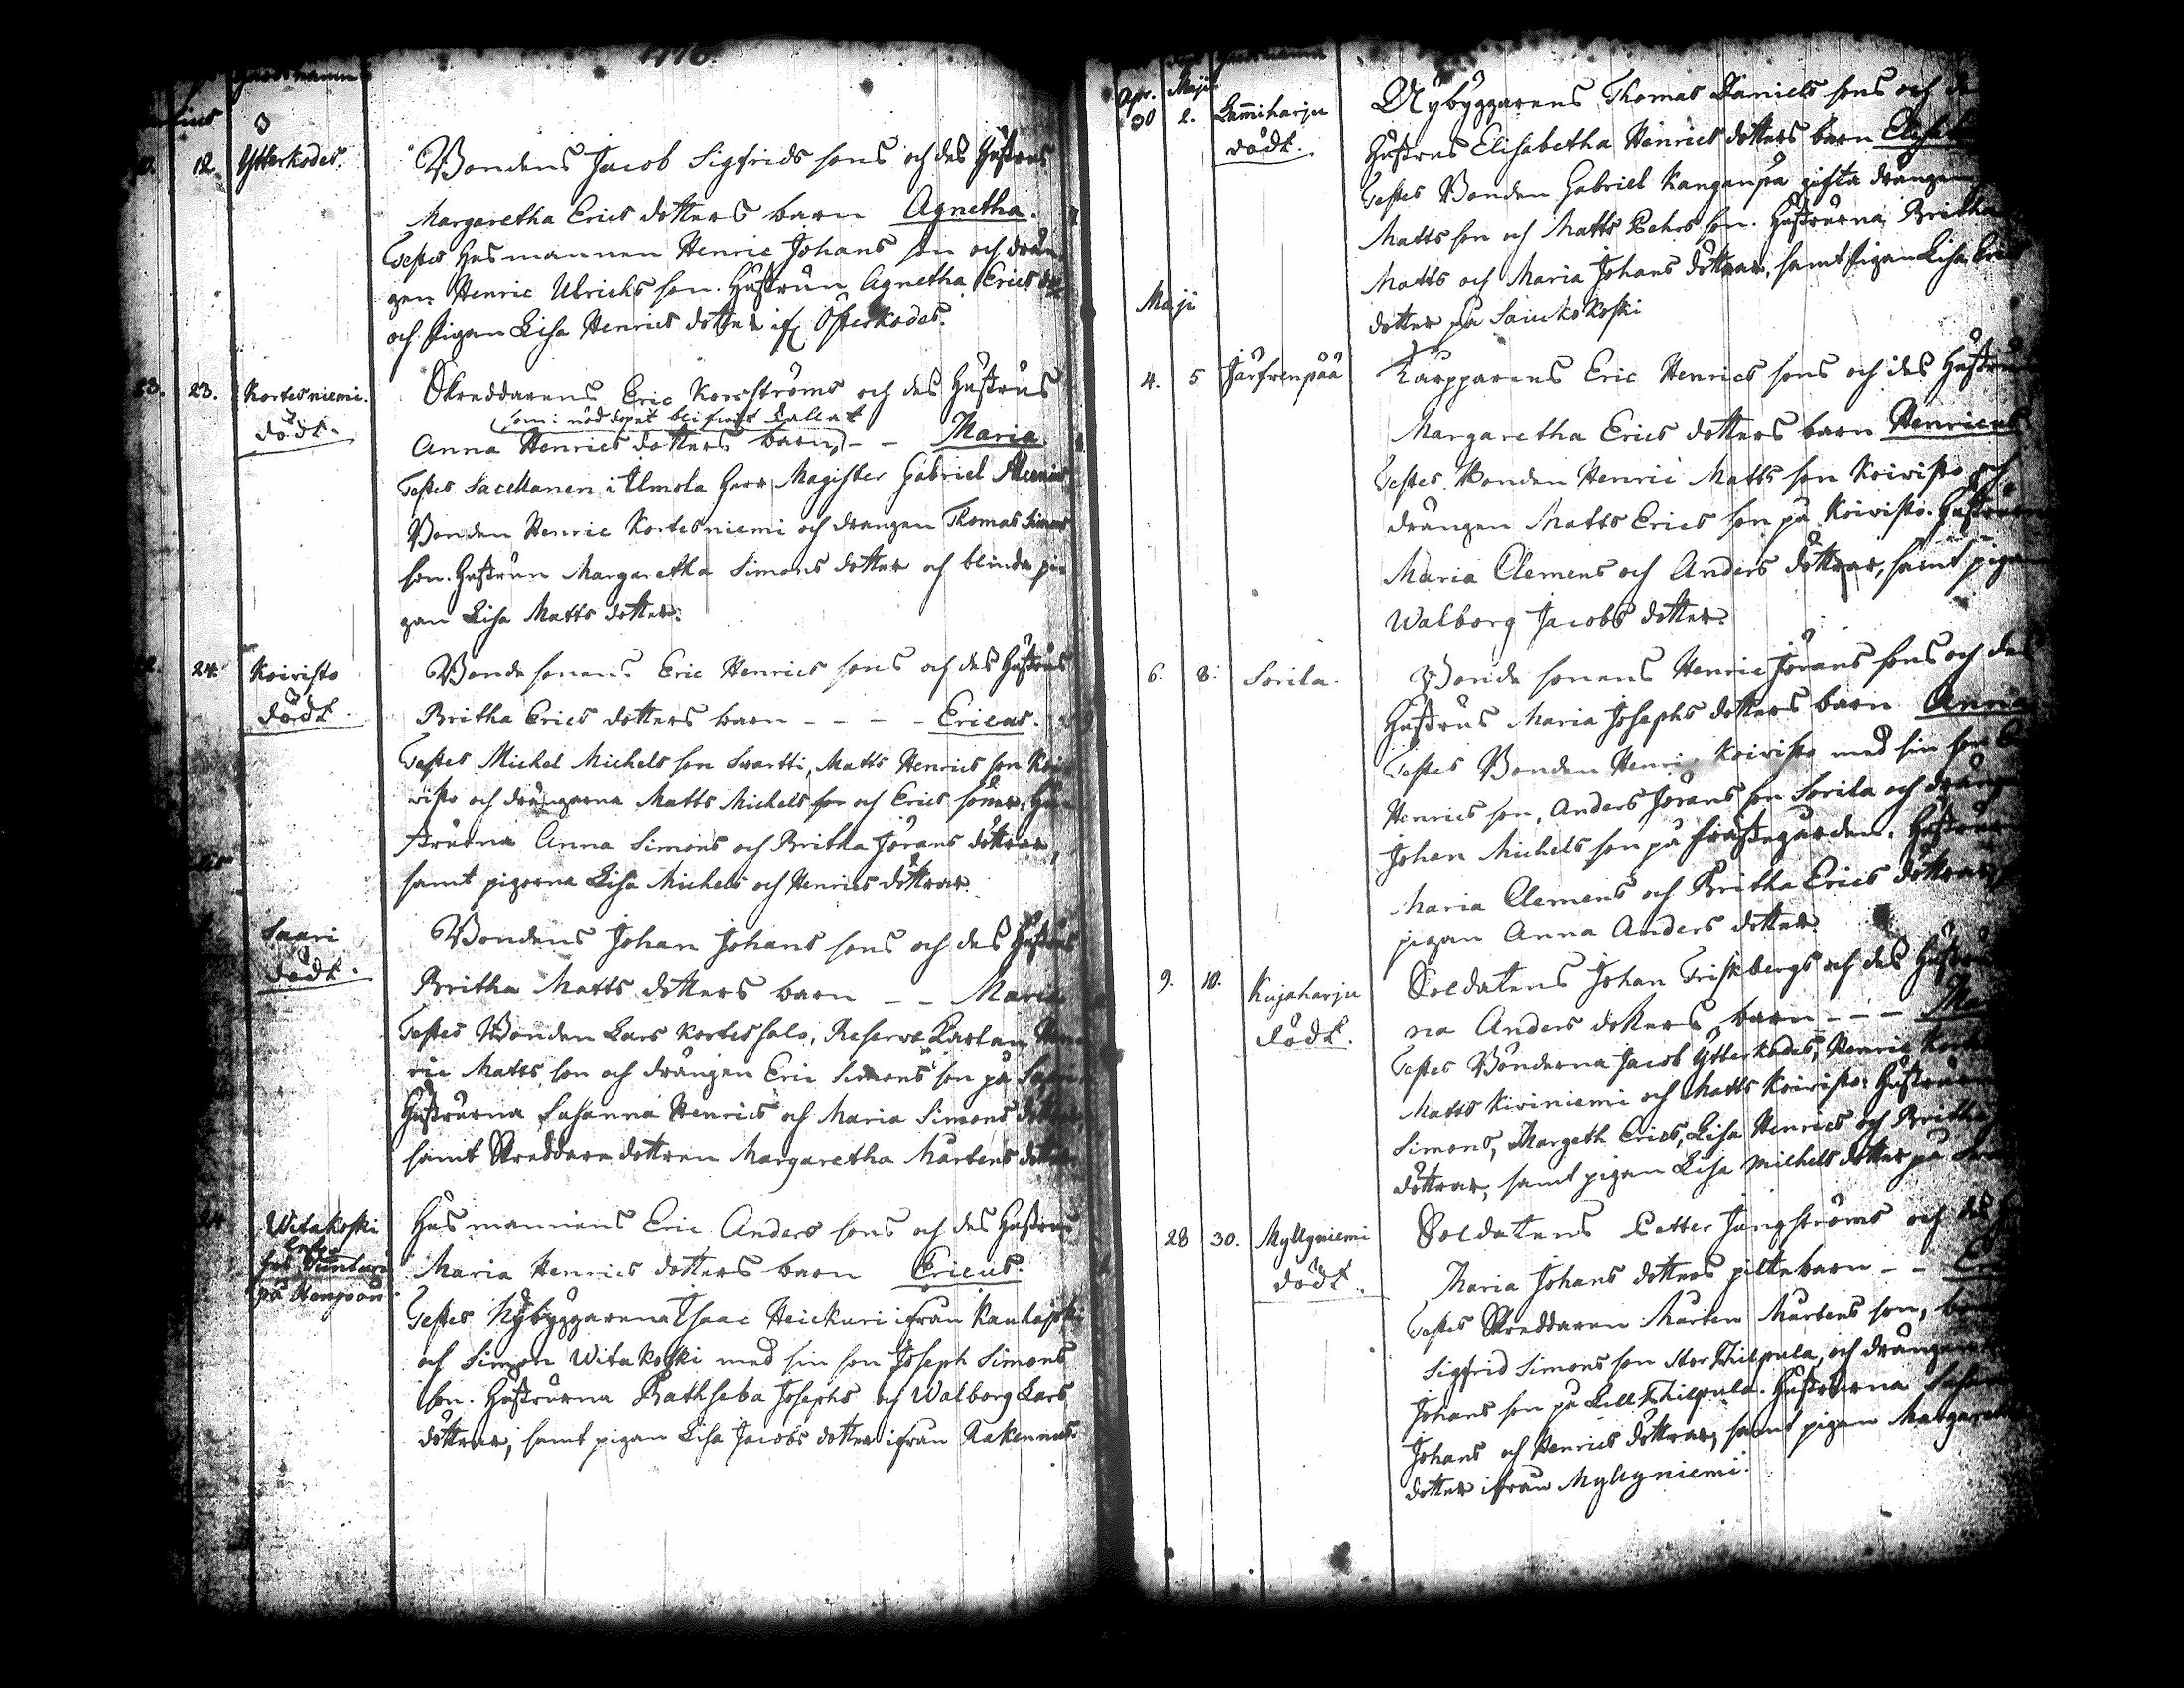 1776.
12. Ytterkodes.
Bondens Jacob Sigfrids sons och des Hustrus
Margaretha Erics dotters barn Agnetha.
Testes Husmannen Henric Johans son och drän
gen Henric Ulrichs son. Hustrun Agnetha Erics
och pigan Lisa Henrics dotter if Österkodes.
23. 23. Kortesniemi.
död.
Skreddarens Eric Korsströms och des Hustrus
som i nöddopet blifwit kallat
Anna Henrics dotters barn, - - Maria
Testes Sacellanen i Ilmola Herr Magister Gabriel
Bonden Henric Kortesniemi och drangen Thomas Simons
son. Hustrun Margaretha Simons dotter och blinda pi
gan Lisa Matts dotter.
24. Koivisto
död.
Bonde sonens Eric Henrics sons och des Hustrus
Britha Erics dotters barn - - - - Ericus.
Testes Michel Michels son Swartti, Matts Henrics son Koi
visto och drängarna Matts Michels son och Erics söner. Hu
struerna Anna Simons och Britha Jörans döttrar,
samt pigorna Lisa Michels och Henrics döttrar.
Saari
död.
Bondens Johan Johans sons och des Hustrus
Britha Matts dotters barn - - Maria
Testes Bonden Lars Kortessalo, Reserve Karlan Hen
ric Matts son och drängen Eric Simons son på
Hustruerna Susanna Henrics och Maria Simons
samt Skreddare dottren Margaretha Mårtens dotter
24 Witakoski
på
Husmannens Eric Anders sons och des Hustrus
Maria Henrics dotters barn Ericus.
Testes Nybyggarena Isaac Heickuri ifrån
och Simon Witakoski med sin son Joseph Simons
son. Hustruerna Bathseba Josephs och Walborg Lars
döttrar, samt pigan Lisa Jacobs dotter ifrån Rakennus.
Apr. Maji
30 2. Lamiharju
död.
Nybyggarens Thomas Daniels sons och
Hustrus Elisabetha Henrics dotters barn
Testes Bonden Gabriel Kanganpä gifta drängen
Matts son och Matts Pehrs son. Hustruerna Britha
Matts och Maria Johans döttrar, samt pigan Lisa Erics
dotter på
Maji
4. 5 Järfvenpää
Karpparens Eric Henrics sons och des Hustrus
Margaretha Erics dotters barn Henricus
Testes Bonden Henric Matts son Koivisto och
drängen Matts Erics son på Koivisto. Hustruerna
Maria Clemens och Anders döttrar, samt pigan
Walborg Jacobs dotter.
6. 8. Sorila.
Bonde sonens Henric Jörans sons och des
Hustrus Maria Josephs dotters barn Anna
Testes Bonden Henric Koivisto med sin son
Henrics son, Anders Jörans son Sorila och dräng
Johan Michels son på Prästegården. Hustruerna
Maria Clemens och Britha Erics döttrar,
pigan Anna Anders dotter.
9. 10. Kujaharju
död.
Soldatens Johan Friskbergs och des Hustru
na Anders dotters barn - - -
Testes Bönderna Jacob Ytterkodes, Henric
Matts Kiviniemi och Matts Koivisto. Hustruerna
Simons, Margeth Erics, Lisa Henrics och Britha
döttrar, samt pigan Lisa Michels dotter på
28 30. Myllyniemi
död.
Soldatens Petter Jungströms och des
Maria Johans dotters piltebarn - -
Testes Skreddaren Mårten Mårtens son,
Sigfrid Simons son Stor Filpula, och drängen
Johans son på Lill Filpula. Hustruerna
Johans och Henrics döttrar, samt pigan
dotter ifrån Myllyniemi.